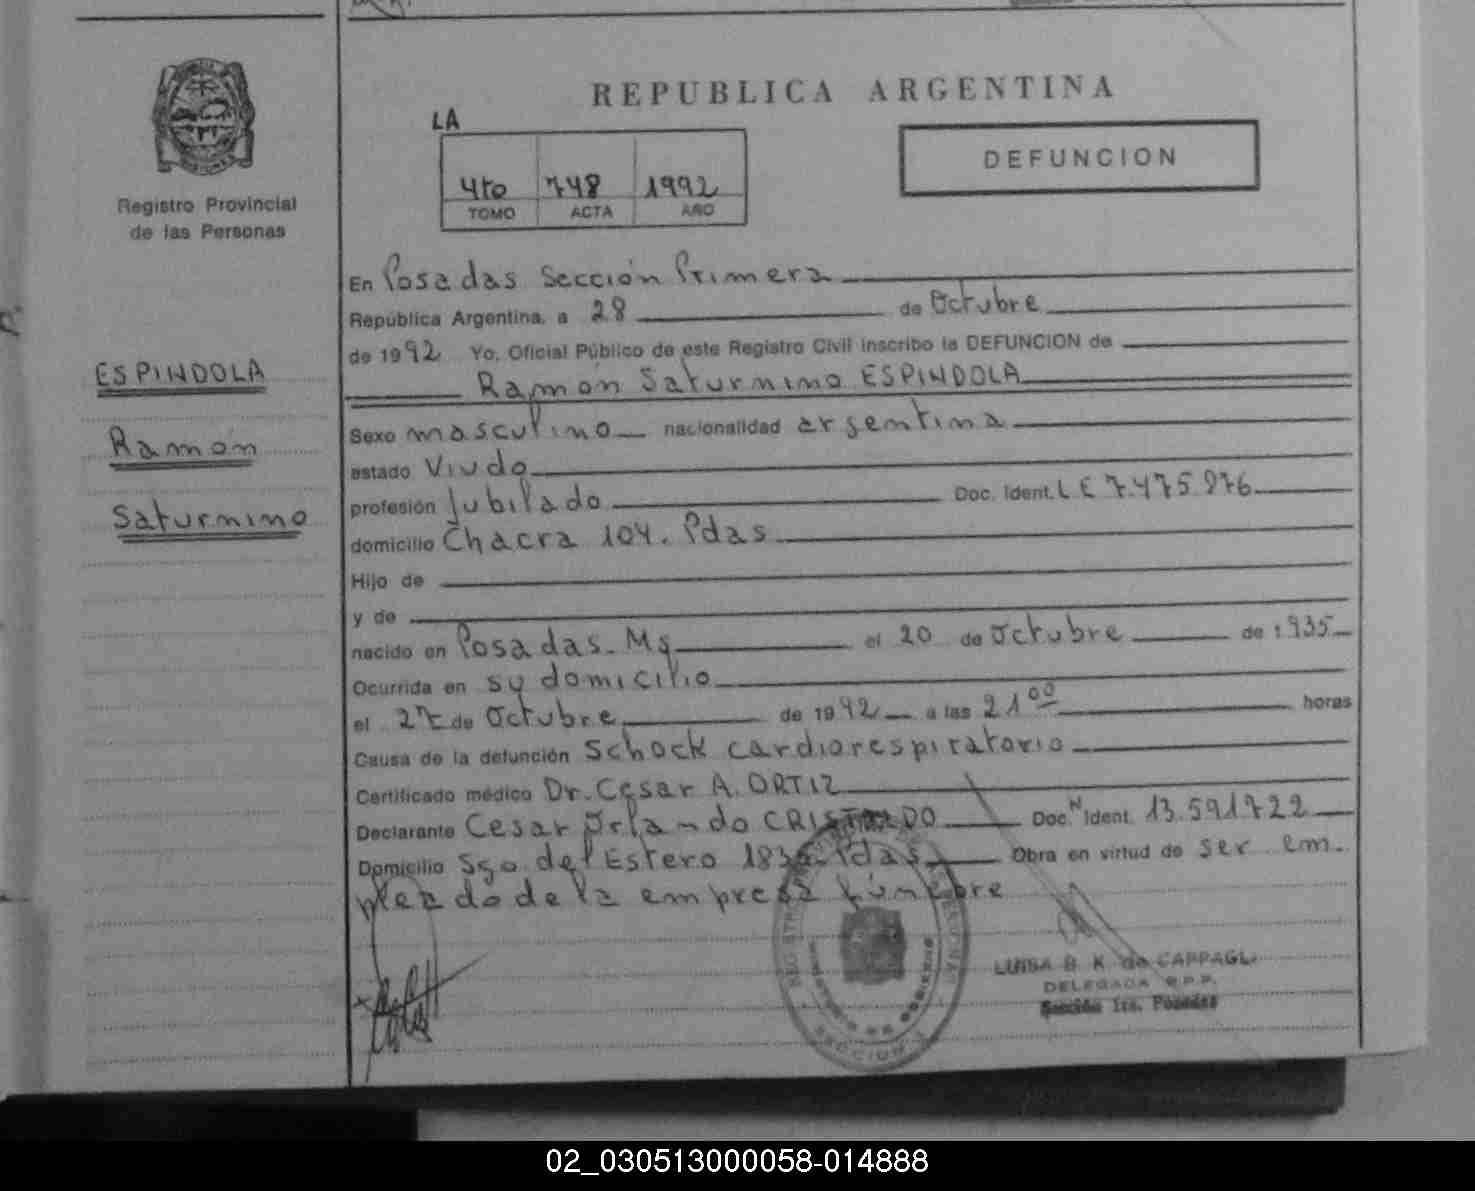 REPUBLICA ARGENTINA
LA
DEFUNCION
4to 748 1992
TOMO ACTA AÑO
Registro Provincial
de las Personas
ESPINDOLA
Ramón
Saturnino
En Posadas Sección Primera
República Argentina, a 28 de Octubre
de 1992 Yo, Oficial Público de este Registro Civil inscribo la DEFUNCION de
Ramón Saturnino ESPINDOLA
Sexo masculino nacionalidad argentina
estado Viudo
profesión Jubilado Doc. Ident. LE 7.475.976
domicilio Chacra 104. Pdas
Hijo de
y de
nacido en Posadas. Ms el 20 de Octubre de 1.935
Ocurrida en su domicilio
el 27 de Octubre de 1992 a las 21⁰⁰ horas
Causa de la defunción Schock cardiorespiratorio
Certificado médico Dr. Cesar A. ORTIZ
Declarante Cesar Orlando CRISTALDO Doc. N Ident. 13.591722
Domicilio Sgo. del Estero Pdas Obra en virtud de ser em-
pleado de la empresa fúnebre
LUISA B. K. de CAPPAGLI
DELEGADA R.P.P.
Sección 1ra. Posadas
SECCION
02_030513000058-014888